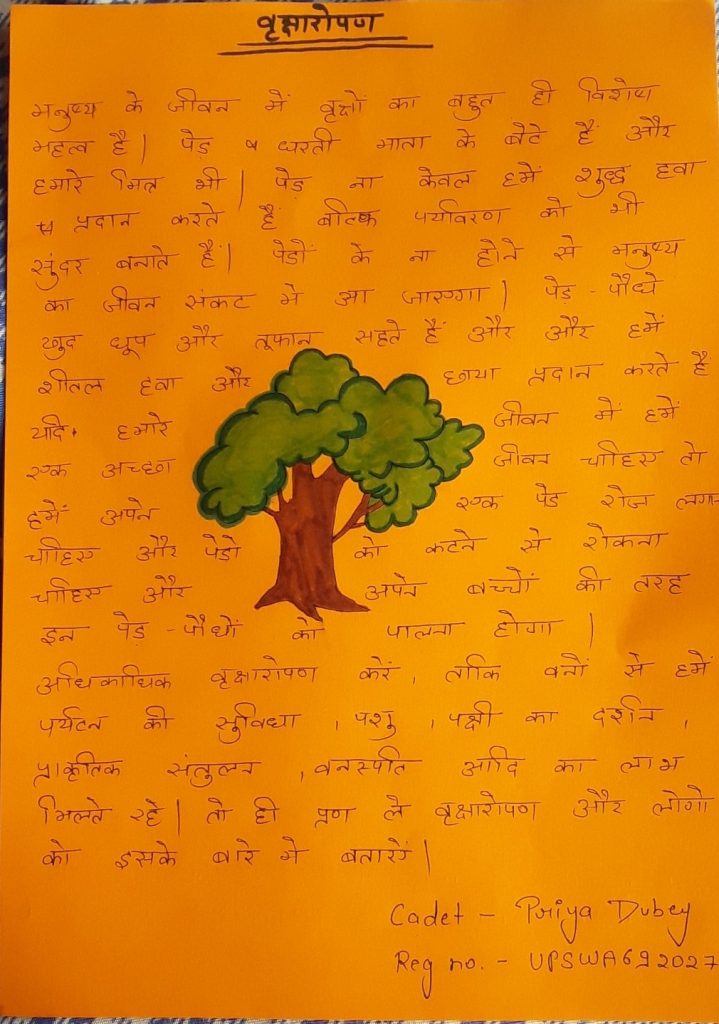 वृक्षारोपण
मनुष्य के जीवन में वृक्षों का बहुत ही विशेष
महत्व है| पेड़ धरती माता के बेटे हैं और
हमारे मित्र भी| पेड़ ना केवल हमें शुद्ध हवा
प्रदान करते हैं बल्कि पर्यावरण को भी
सुंदर बनाते हैं| पेडों के ना होने से मनुष्य
का जीवन संकट मे आ जाएगा| पेड़ - पौधे
खुद धूप और तूफान सहते हैं और और हमें
शीतल हवा और छाया प्रदान करते है
यदि हमारे जीवन में हमें
एक अच्छा जीवन चाहिए तो
हमें अपने एक पेड रोज लगा
चाहिए और पेडो को कटने से रोकना
चाहिए और अपने बच्चों की तरह
इन पेड़ - पौधों को पालना होगा |
अधिकाधिक वृक्षारोपण करें, ताकि वनों से हमें
पर्यटन की सुविधा, पशु, पक्षी का दर्शन,
प्राकृतिक संतुलन, वनस्पति आदि का लाभ
मिलते रहे| तो ही प्रण ले वृक्षारोपण और लोगो
को इसके बारे मे बताएं|
Cadet - Priya Dubey
Reg no. - UPSWA692027